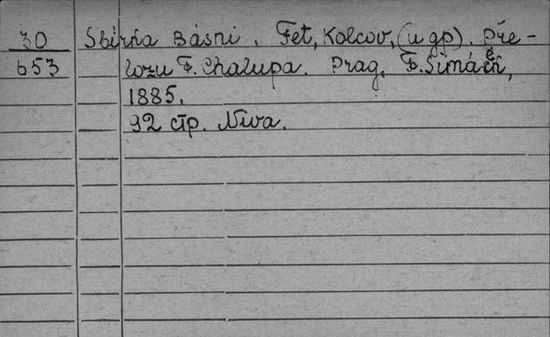 30 Sbírka Básni. Fet, Kolcov, (u gp). Pře-
653 lozu F. Chalupa. Prag, F. Šimáček,
1885.
92 стр. Niva.